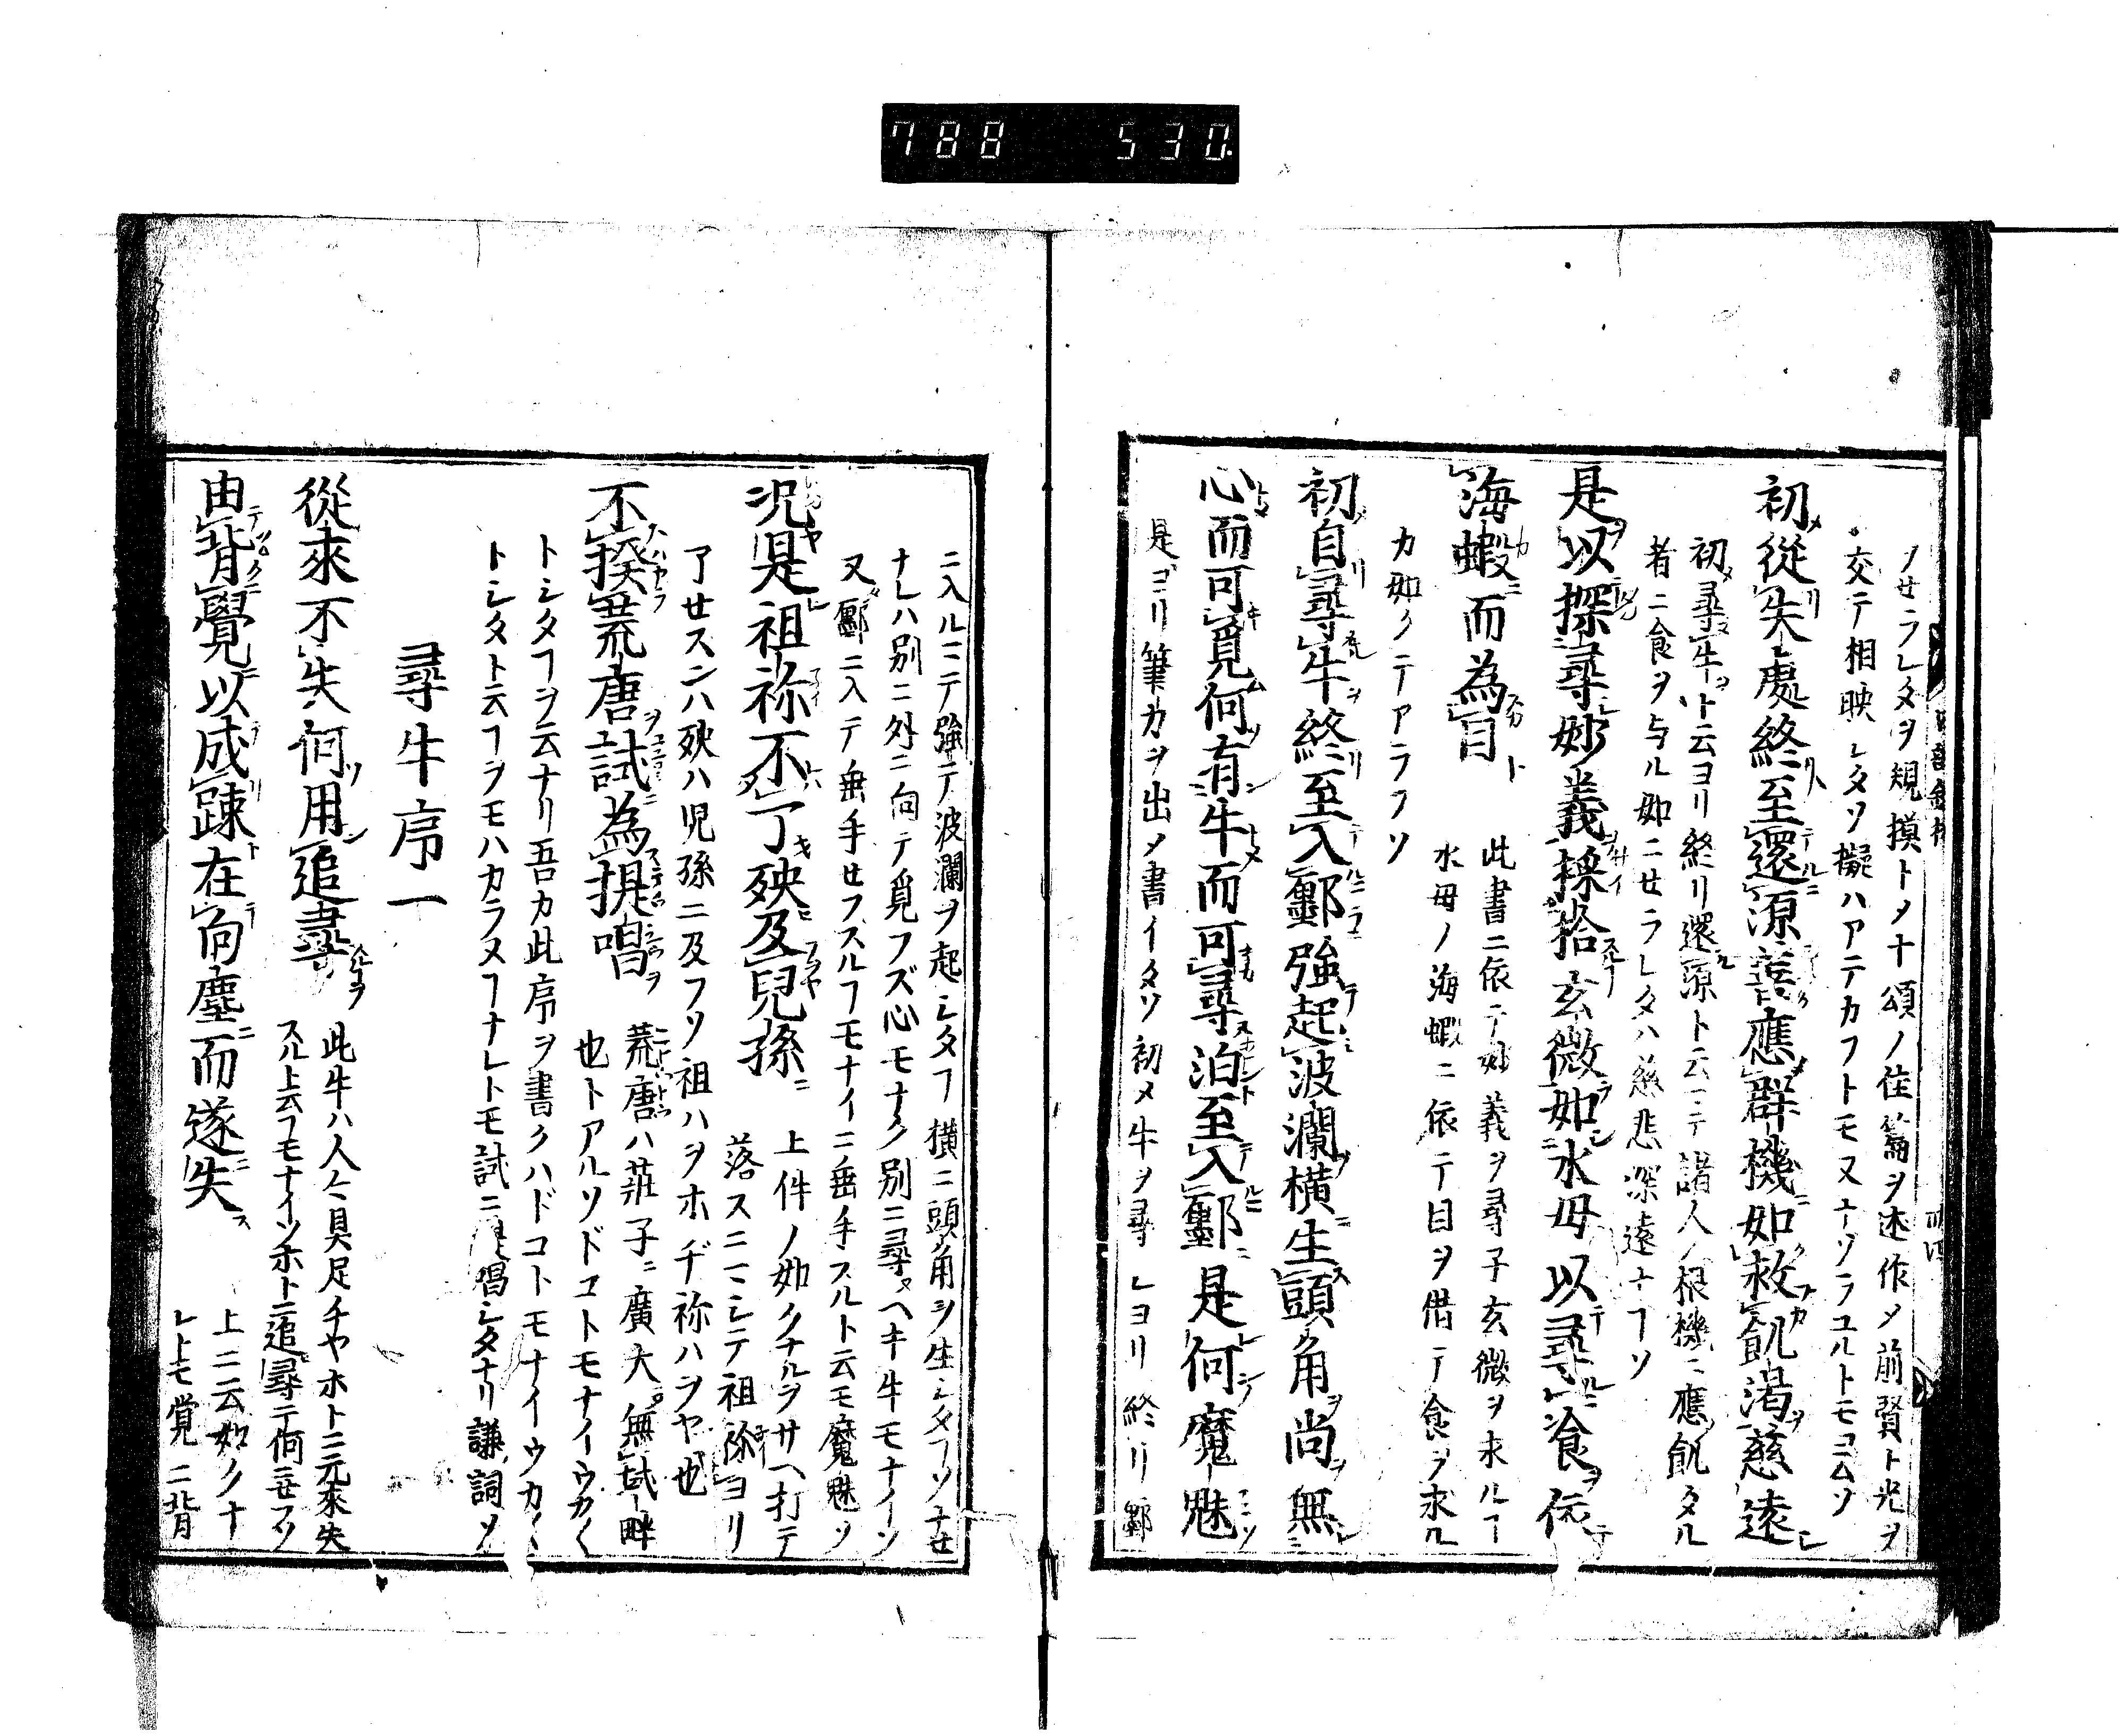 788 530
ノせラレタヲ規摸トメ十頌ノ佳篇ヲ述作メ前賢ト光ヲ
交テ相映レタソ擬ハアテカフトモヌユヅラユルトモヨムソ
初從失處終至還源善應群機如救飢渇慈遠
初尋牛ト云ヨリ終リ還源ト云マテ諸人ノ根機ニ應飢タル
者ニ食ヲ与ル如ニせラレタハ慈悲深遠ナフソ
是以探尋妙義採拾玄微如水母以尋飡依
海蝦而為目
此書ニ依テ妙義ヲ尋子玄微ヲ求ルフ
水母ノ海蝦ニ依テ目ヲ借テ食ヲ求ル
カ如クテアラフソ
初自尋牛終至入鄽強起波瀾横生頭角尚無
心而可覓何有牛而可尋泊至入鄽是何魔魅
是ヨリ筆カヲ出メ書イタソ初メ牛ヲ尋レヨリ終リ鄽
ニ入ルマテ強テ波瀾ヲ起シタフ横ニ頭角ヲ生シタフソナせ
ナレハ別ニ外ニ向テ覓フズ心モナク別ニ尋ヌヘキ牛モナイソ
又鄽ニ入テ垂手せフスルフモナイニ垂手スルト云モ魔魅ソ
况是祖祢不了殃及兒孫
上件ノ如クナルヲサヘ打テ
落スニマシテ祖祢ヨリ
了せスンハ殃ハ児孫ニ及フソ祖ハヲホヂ祢ハヲヤ也
不揆荒唐試為提唱
荒唐ハ莊子ニ廣大無域畔
也トアルソドコトモナイウカく
トシタフヲ云ナリ吾カ此序ヲ書クハドコトモナイウカく
トシタト云フヲモハカラヌフナレトモ試ニ提唱シタナリ謙詞ソ
尋牛序一
從來不失何用追尋
此牛ハ人々具足チヤホトニ元來失
スル上云フモナイソホトニ追尋テ何ニせフソ
由背覺以成踈在向塵而遂失
上ニ云如クナ
レトモ覚ニ背